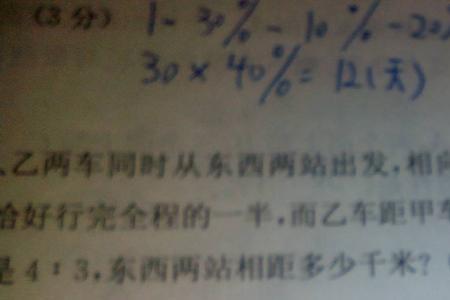 (3分) 1-30%-10%-20%
30×40%=12(天)
、乙两车同时从东西两站出发,相向
恰好行完全程的一半,而乙车距甲车
是4:3,东西两站相距多少千米?